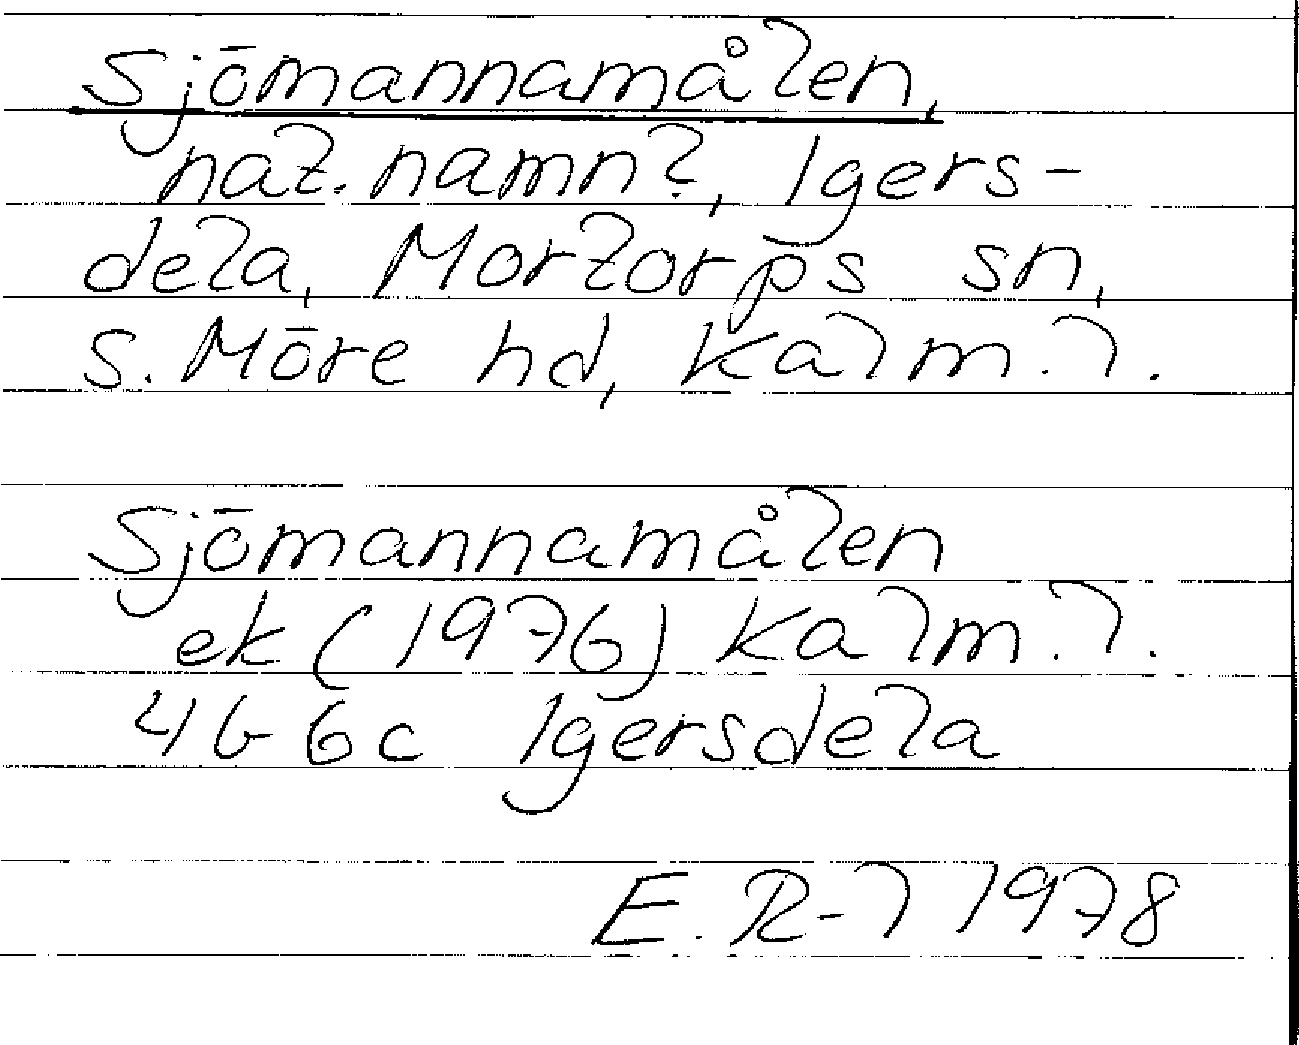 Sjömannamålen,
nat. namn?, Igers-
dela, Mortorps sn,
s. Möre hd, Kalm. l.
Sjömannamålen
ek (1976) Kalm. l.
4G 6c Igersdela
E. R-l 1978